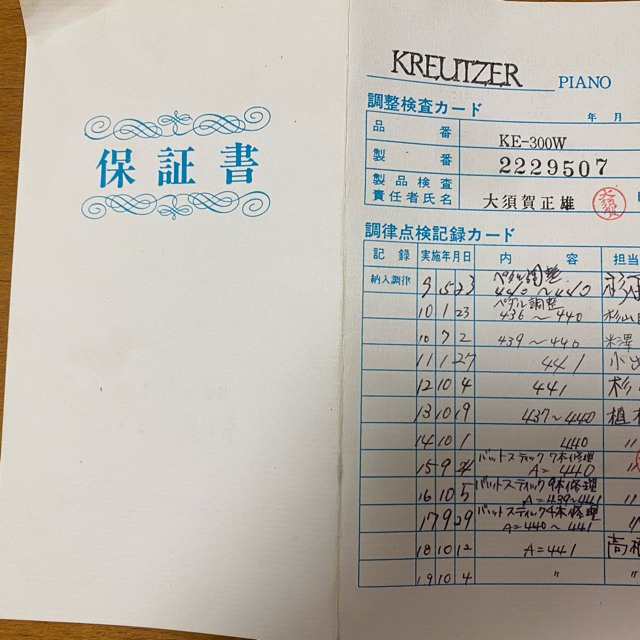 保証書
KREUTZER PIANO
調整検査カード
年 月
品番 KE-300W
製番 2229507
製品検査
責任者氏名 大須賀正雄
調律点検記録カード
記録 実施年月日 内容 担当
ペダル調整
納入調律 9 5 23 440〜440
ペダル調整
10 1 23 436〜440 杉山
10 7 2 439〜440 米澤
11 1 27 441 小
12 10 4 441 杉
13 10 19 437〜440 植
14 10 1 440 〃
バットスティック7本修理
15 9 24 A=440 〃
バットスティック9本修理
16 10 5 A=439〜441 〃
バットスティック4本修理
17 9 29 A=440〜441 〃
18 10 12 A=441 高橋
19 10 4 〃 〃